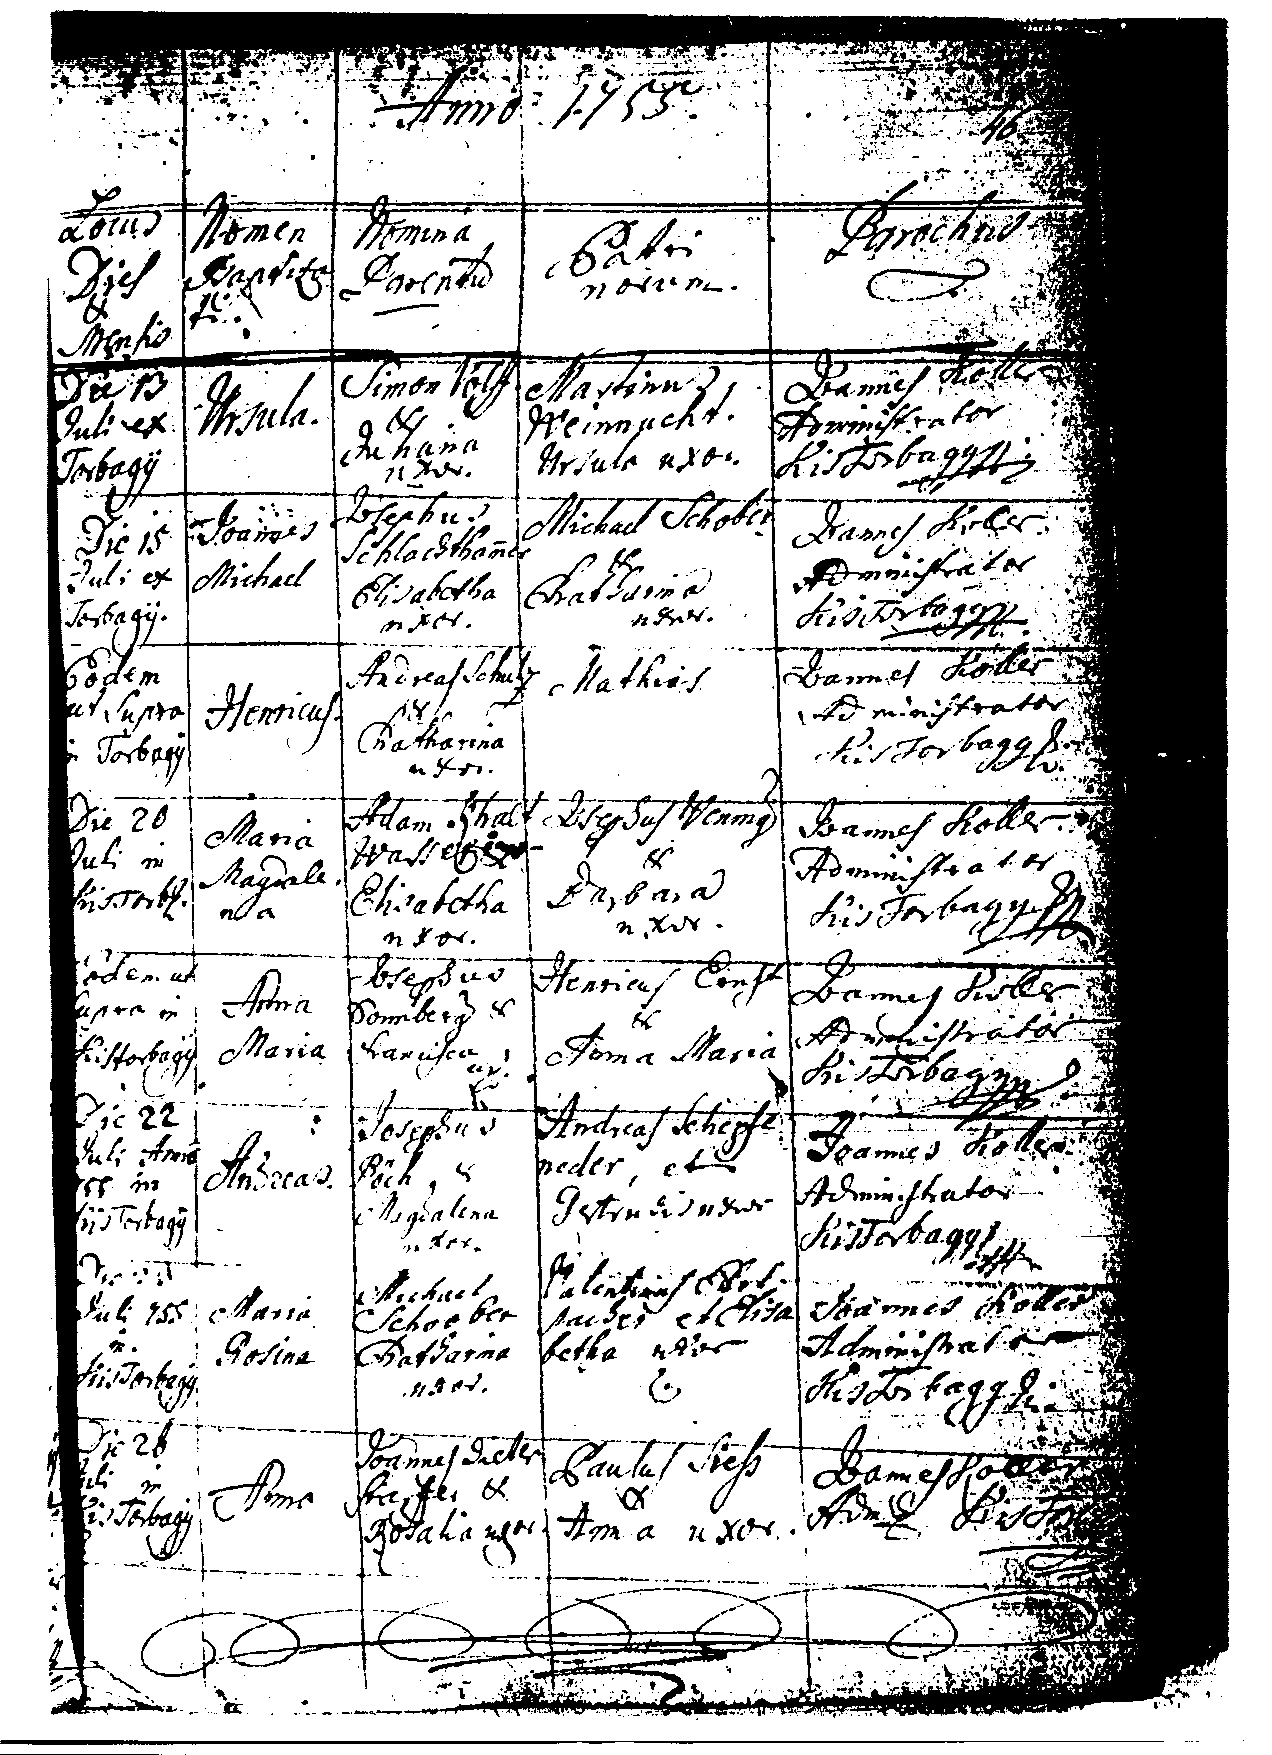 Anno 1755.
46
Locus
Dies
&
Mensis
Nomen
Baptiza
ti.
Nomina
Parentū
Patri
norum.
Parochus
Die 13
Juli ex
Torbagÿ
Ursula.
Simon Völf
&
Juliana
uxor.
Martinus
Weinnacht.
Ursula uxor.
Joannes Koller
Administrator
KisTorbagy
Die 15
Juli ex
Torbagÿ.
Joannes
Michael
Josephus
Schlachthamer
Elisabetha
uxor.
Michael Schober
&
Catharina
uxor.
Joannes Koller.
Administrator
KisTorbagy
Eodem
ut Supra
in Torbagÿ
Henricus.
Andreas Schultz
&
Catharina
uxor.
Mathias
Joannes Koller
Administrator
KisTorbagy
Die 20
Juli in
KisTorb.
Maria
Magdale
na
Adam
Elisabetha
uxor.
Josephus
&
Barbara
uxor.
Joannes Koller.
Administrator
KisTorbagy
Eodem ut
supra in
KisTorbagy
Anna
Maria
Josephus
Sonnberg &
Francisca
ux.
Henricus Ernst
&
Anna Maria
Joannes Koller
Administrator
KisTorbagy
Die 22
Juli Anno
755 in
KisTorbagÿ
Andreas.
Josephus
Pöch, &
Magdalena
uxor.
Andreas Schepfe
neder, et
Gertrudis uxor
Joannes Koller.
Administrator
KisTorbagy
Die
Juli 755
in
KisTorbagy
Maria
Rosina
Michael
Schoeber
Catharina
uxor.
Valentinus
et Elisa
betha uxor
Joannes Koller
Administrator
KisTorbagy
Die 26
Juli in
KisTorbagÿ
Anna
Joannes Dieter
&
Rosalia uxor.
Paulus Siess
&
Anna uxor.
Joannes Koller
Adm KisTor